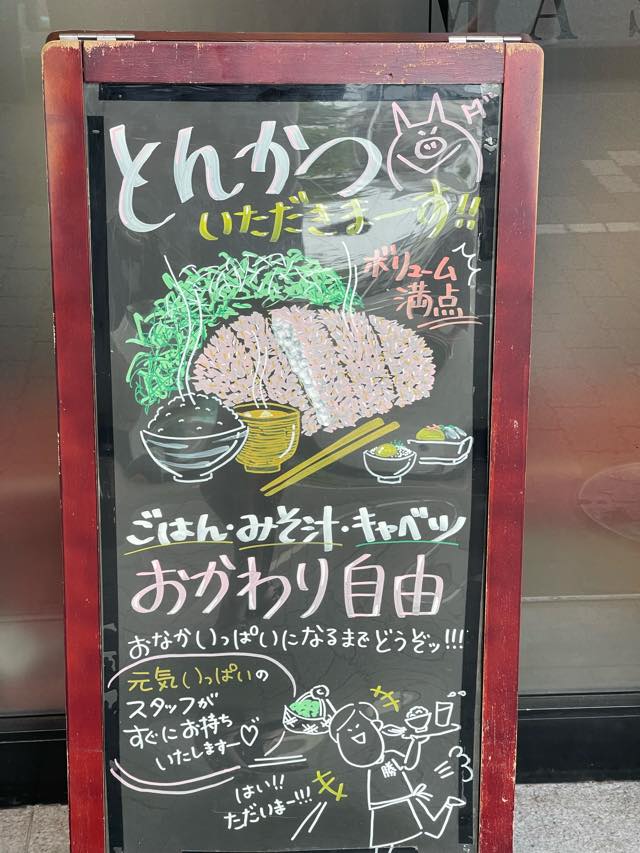 とんかつ
いただきまーす!!
ボリューム
満点
ごはん・みそ汁・キャベツ
おかわり自由
おなかいっぱいになるまでどうぞッ!!!
元気いっぱいの
スタッフが
すぐにお持ち
いたしますー♡
はい!!
ただいまー!!!
勝